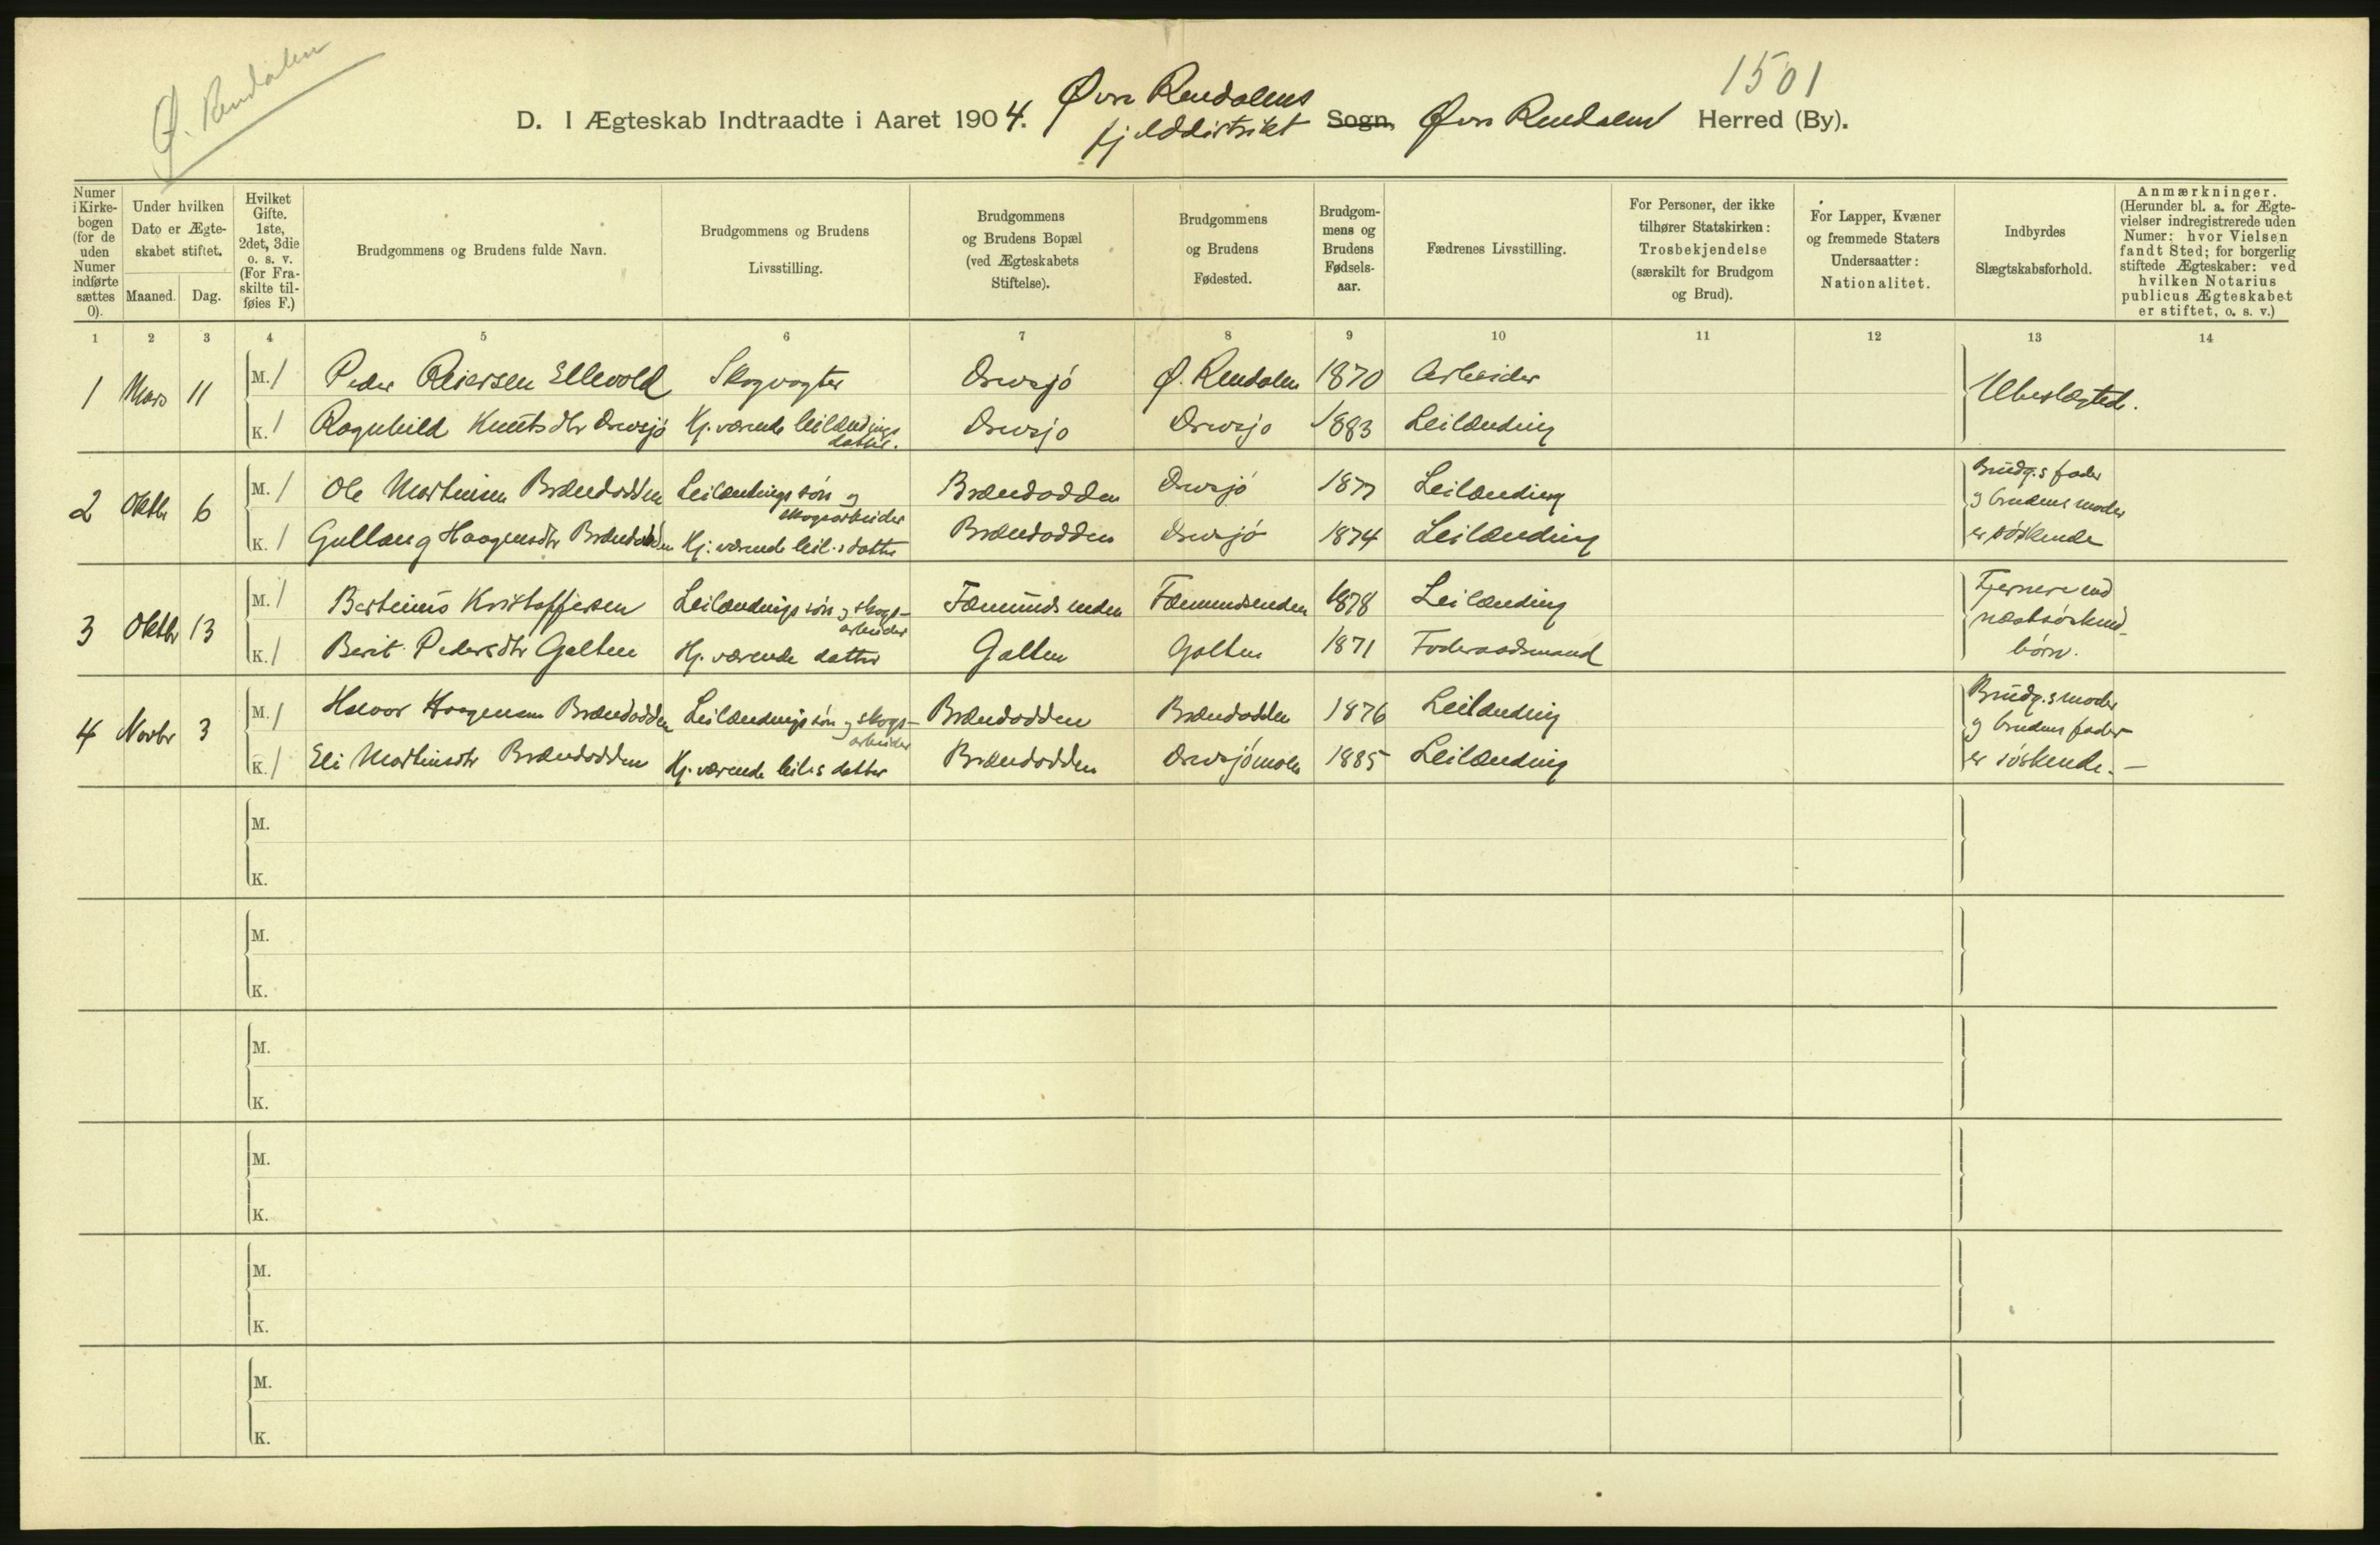 Ø. Rendalen
1501
D. I Ægteskab Indtraadte i Aaret 1904. Øvre Rendalens fjelddistrikt Sogn, Øvre Rendalens Herred (By).
Numer i Kirkebogen (for de uden Numer indførte sættes 0).
Under hvilken Dato er Ægteskabet stiftet.
Maaned. Dag.
Hvilket Gifte. 1ste, 2det, 3die o. s. v. (For Fraskilte tilføies F.)
Brudgommens og Brudens fulde Navn.
Brudgommens og Brudens Livsstilling.
Brudgommens og Brudens Bopæl (ved Ægteskabets Stiftelse).
Brudgommens og Brudens Fødested.
Brudgommens og Brudens Fødselsaar.
Fædrenes Livsstilling.
For Personer, der ikke tilhører Statskirken: Trosbekjendelse (særskilt for Brudgom og Brud).
For Lapper, Kvæner og fremmede Staters Undersaatter: Nationalitet.
Indbyrdes Slægtskabsforhold.
Anmærkninger. (Herunder bl. a. for Ægtevielser indregistrerede uden Numer: hvor Vielsen fandt Sted; for borgerlig stiftede Ægteskaber: ved hvilken Notarius publicus Ægteskabet er stiftet, o. s. v.)
1 2 3 4 5 6 7 8 9 10 11 12 13 14
1 Mars 11 M. 1 Peder Reiersen Ellevold Skogvogter Drevsjø Ø. Rendalen 1870 Arbeider Ubeslægtede.
K. 1 Ragnhild Knutsdtr Drevsjø Hj. værende leilændings datter. Drevsjø Drevsjø 1883 Leilænding
2 Oktbr 6 M. 1 Ole Martinsen Brændodden Leilændings søn og skogsarbeider Brændodden Drevsjø 1877 Leilænding Brudg.s fader og brudens moder er søskende
K. 1 Gullaug Haagensdtr Brændodden Hj. værende leil.s datter Brændodden Drevsjø 1874 Leilænding
3 Oktbr 13 M. 1 Bertinus Kristoffersen Leilændings søn og skogsarbeider Fæmundsenden Fæmundsenden 1878 Leilænding Fjernere end næstsøskendbørn.
K. 1 Berit Pedersdtr Galten Hj. værende datter Galten Galten 1871 Foderaadsmand
4 Novbr 3 M. 1 Halvor Haagensen Brændodden Leilændings søn og skogsarbeider Brændodden Brændodden 1876 Leilænding Brudg.s moder og brudens fader er søskende. —
K. 1 Eli Martinsdtr Brændodden Hj. værende leil.s datter Brændodden Drevsjømoen 1885 Leilænding
M.
K.
M.
K.
M.
K.
M.
K.
M.
K.
M.
K.